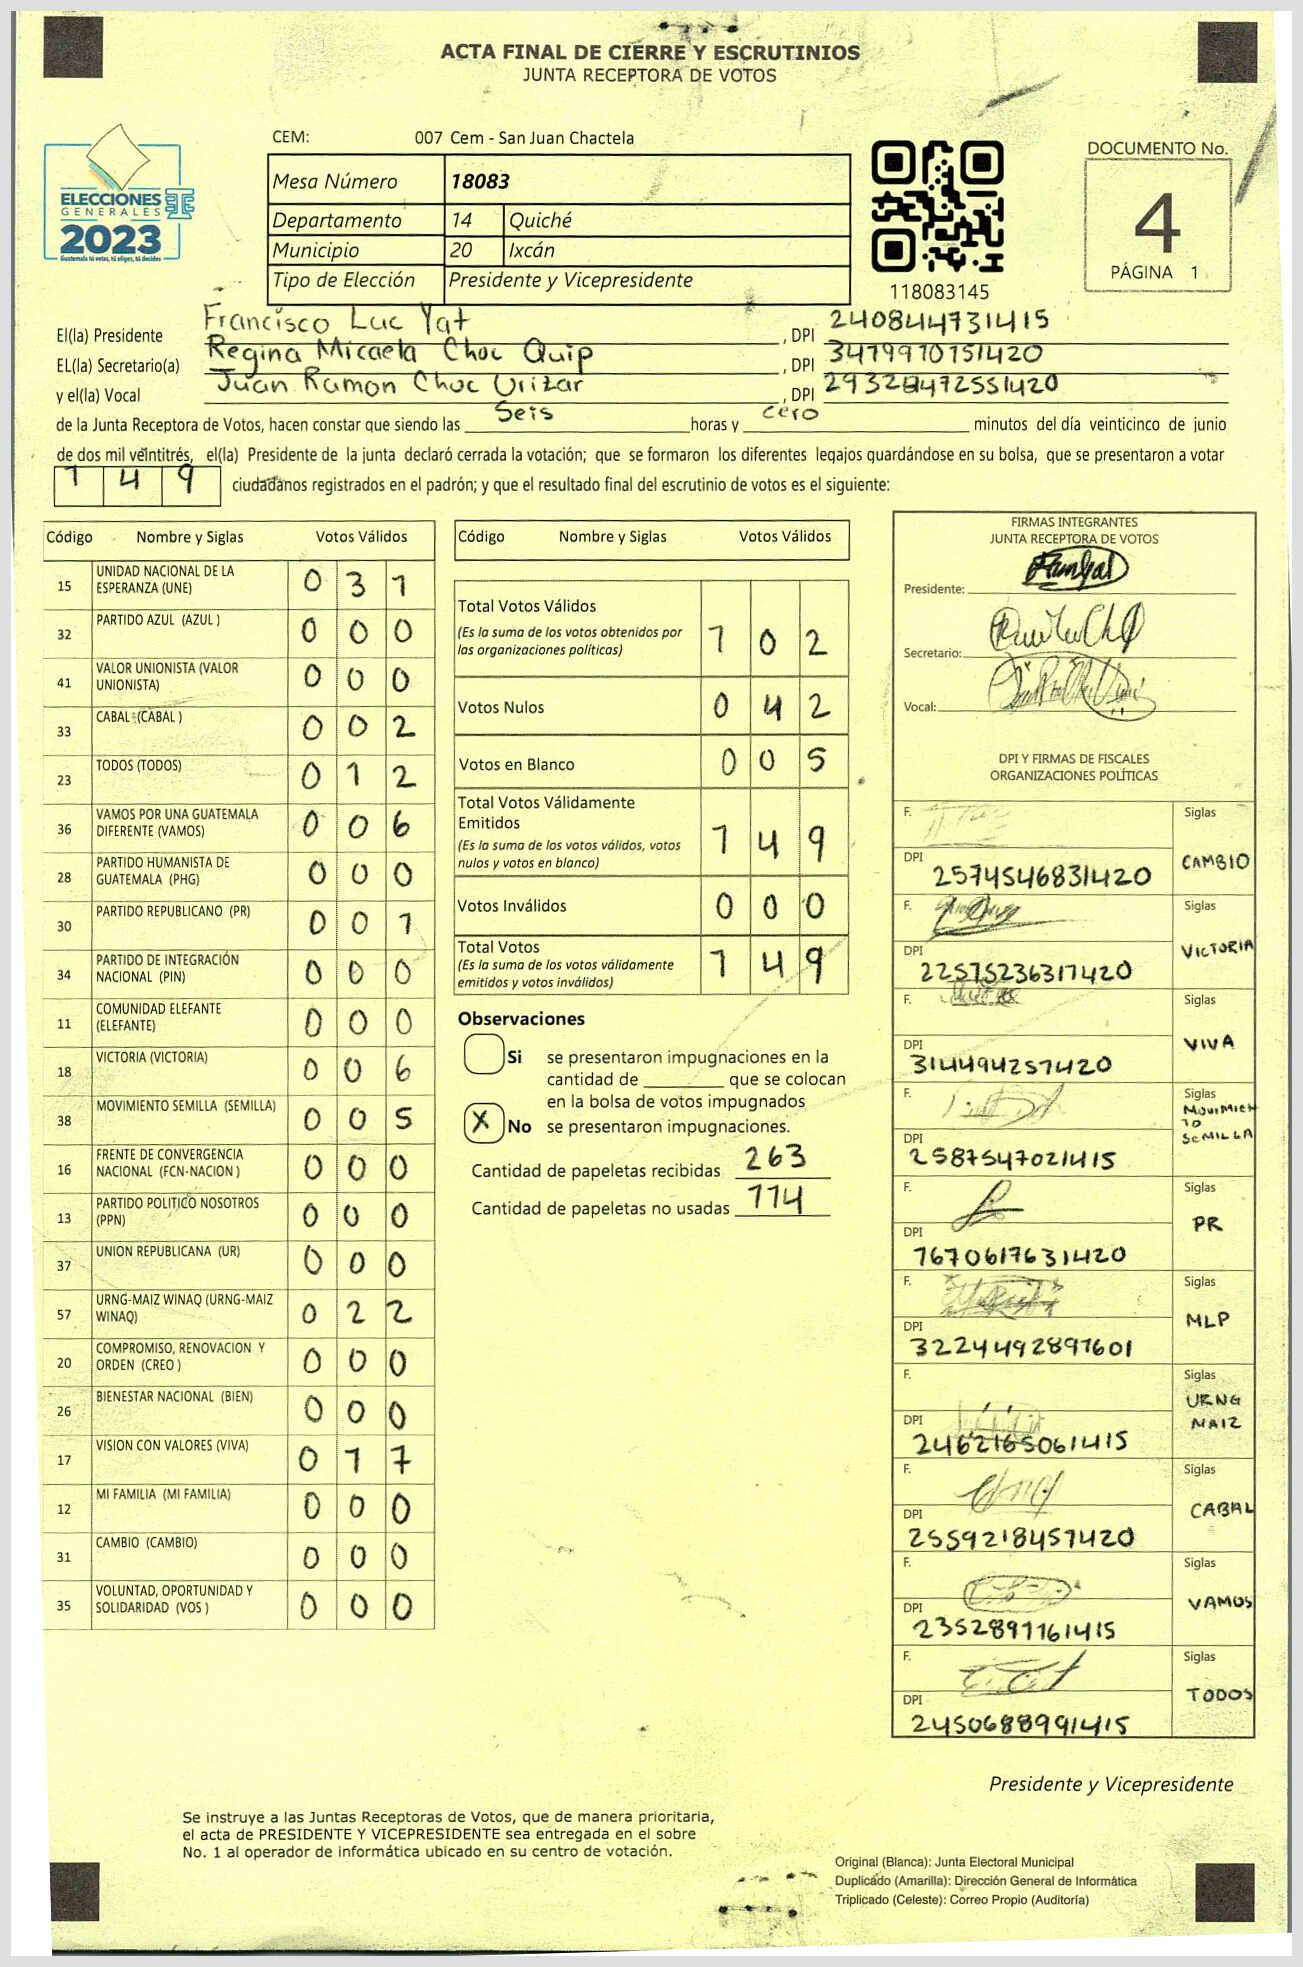 ACTA FINAL DE CIERRE Y ESCRUTINIOS
JUNTA RECEPTORA DE VOTOS
CEM: 007 Cem - San Juan Chactela
ELECCIONES
GENERALES
2023
Guatemala tú votas, tú eliges, tú decides
Mesa Número 18083
Departamento 14 Quiché
Municipio 20 Ixcán
Tipo de Elección Presidente y Vicepresidente
118083145
DOCUMENTO No.
4
PÁGINA 1
El(la) Presidente Francisco Luc Yat , DPI 2408447314 15
EL(la) Secretario(a) Regina Micaela Choc Quip , DPI 3479970751420
y el(la) Vocal Juan Ramon Choc Urizar , DPI
de la Junta Receptora de Votos, hacen constar que siendo las seis horas y cero minutos del día veinticinco de junio
de dos mil veintitrés, el(la) Presidente de la junta declaró cerrada la votación; que se formaron los diferentes legajos guardándose en su bolsa, que se presentaron a votar
149 ciudadanos registrados en el padrón; y que el resultado final del escrutinio de votos es el siguiente:
Código Nombre y Siglas Votos Válidos
15 UNIDAD NACIONAL DE LA ESPERANZA (UNE) 0 3 1
32 PARTIDO AZUL (AZUL ) 0 0 0
41 VALOR UNIONISTA (VALOR UNIONISTA) 0 0 0
33 CABAL (CABAL ) 0 0 2
23 TODOS (TODOS) 0 1 2
36 VAMOS POR UNA GUATEMALA DIFERENTE (VAMOS) 0 0 6
28 PARTIDO HUMANISTA DE GUATEMALA (PHG) 0 0 0
30 PARTIDO REPUBLICANO (PR) 0 0 1
34 PARTIDO DE INTEGRACIÓN NACIONAL (PIN) 0 0 0
11 COMUNIDAD ELEFANTE (ELEFANTE) 0 0 0
18 VICTORIA (VICTORIA) 0 0 6
38 MOVIMIENTO SEMILLA (SEMILLA) 0 0 5
16 FRENTE DE CONVERGENCIA NACIONAL (FCN-NACION ) 0 0 0
13 PARTIDO POLITICO NOSOTROS (PPN) 0 0 0
37 UNION REPUBLICANA (UR) 0 0 0
57 URNG-MAIZ WINAQ (URNG-MAIZ WINAQ) 0 2 2
20 COMPROMISO, RENOVACION Y ORDEN (CREO ) 0 0 0
26 BIENESTAR NACIONAL (BIEN) 0 0 0
17 VISION CON VALORES (VIVA) 0 1 7
12 MI FAMILIA (MI FAMILIA) 0 0 0
31 CAMBIO (CAMBIO) 0 0 0
35 VOLUNTAD, OPORTUNIDAD Y SOLIDARIDAD (VOS ) 0 0 0
Código Nombre y Siglas Votos Válidos
Total Votos Válidos 1 0 2
(Es la suma de los votos obtenidos por
las organizaciones políticas)
Votos Nulos 0 4 2
Votos en Blanco 0 0 5
Total Votos Válidamente
Emitidos 1 4 9
(Es la suma de los votos válidos, votos
nulos y votos en blanco)
Votos Inválidos 0 0 0
Total Votos 1 4 9
(Es la suma de los votos válidamente
emitidos y votos inválidos)
Observaciones
Si se presentaron impugnaciones en la
cantidad de ________ que se colocan
en la bolsa de votos impugnados
X No se presentaron impugnaciones.
Cantidad de papeletas recibidas 263
Cantidad de papeletas no usadas 114
FIRMAS INTEGRANTES
JUNTA RECEPTORA DE VOTOS
Presidente:
Secretario:
Vocal:
DPI Y FIRMAS DE FISCALES
ORGANIZACIONES POLÍTICAS
F. Siglas
DPI 2574546831420 CAMBIO
F. Siglas
DPI 2257523631 7420 VICTORIA
F. Siglas
DPI 3144942571420 VIVA
F. Siglas
DPI 2587547021415 MOVIMIENTO SEMILLA
F. Siglas
DPI 1670617631420 PR
F. Siglas
DPI 3224492891601 MLP
F. Siglas
DPI 2462165061415 URNG MAIZ
F. Siglas
DPI 2559218451420 CABAL
F. Siglas
DPI 2352891161415 VAMOS
F. Siglas
DPI 2450688991415 TODOS
Presidente y Vicepresidente
Se instruye a las Juntas Receptoras de Votos, que de manera prioritaria,
el acta de PRESIDENTE Y VICEPRESIDENTE sea entregada en el sobre
No. 1 al operador de informática ubicado en su centro de votación.
Original (Blanca): Junta Electoral Municipal
Duplicado (Amarilla): Dirección General de Informática
Triplicado (Celeste): Correo Propio (Auditoría)